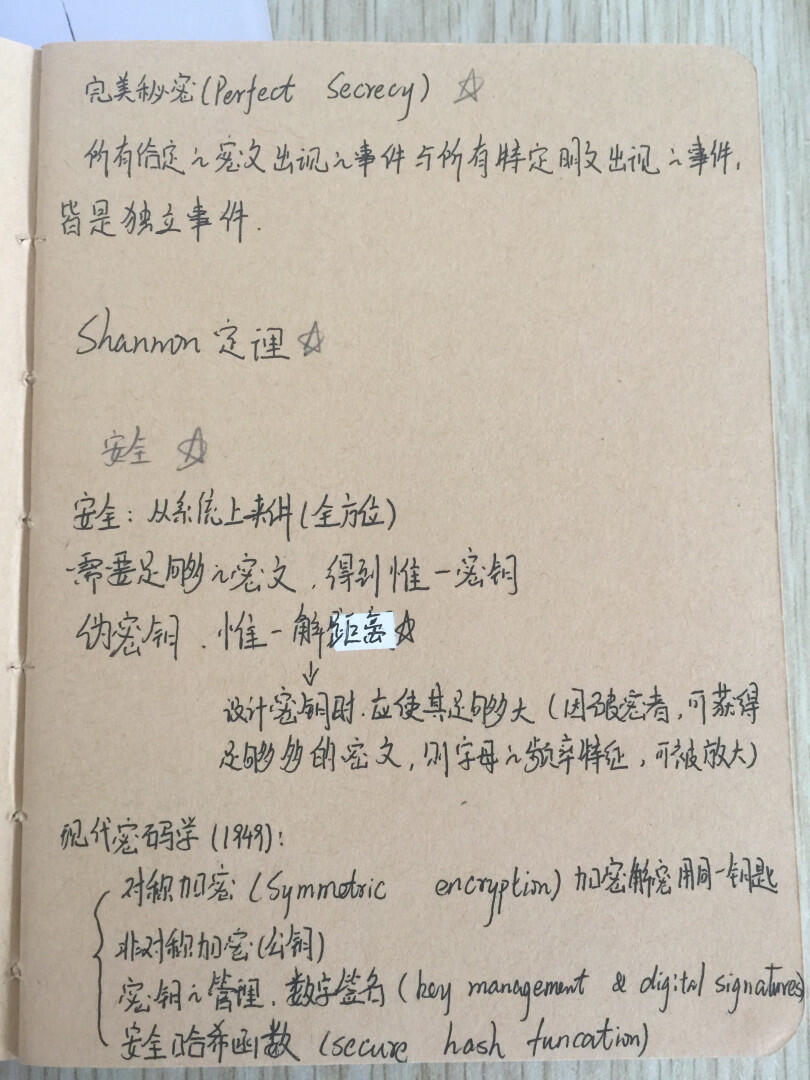 完美秘密(Perfect Secrecy) ☆
所有给定之密文出现之事件与所有特定明文出现之事件,
皆是独立事件.
Shannon 定理☆
安全 ☆
安全: 从系统上来讲(全方位)
需要足够之密文, 得到惟一密钥
伪密钥、惟一解距离☆
↓
设计密钥时. 应使其足够大 (因破密者, 可获得
足够多的密文, 则字母之频率特征, 可被放大)
现代密码学 (1949):
对称加密 (Symmetric encryption) 加密解密用同一钥匙
非对称加密(公钥)
密钥之管理、数字签名 (key management & digital signatures)
安全哈希函数 (secure hash funcation)